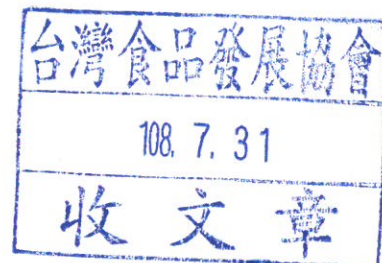 台灣食品發展協會
108. 7. 31
收文章